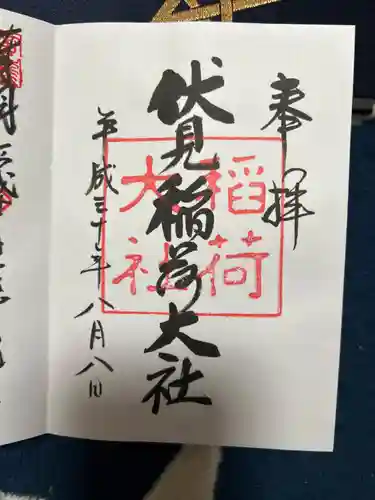 奉拝
伏見稲荷大社
稲荷
大社
平成三十年八月八日